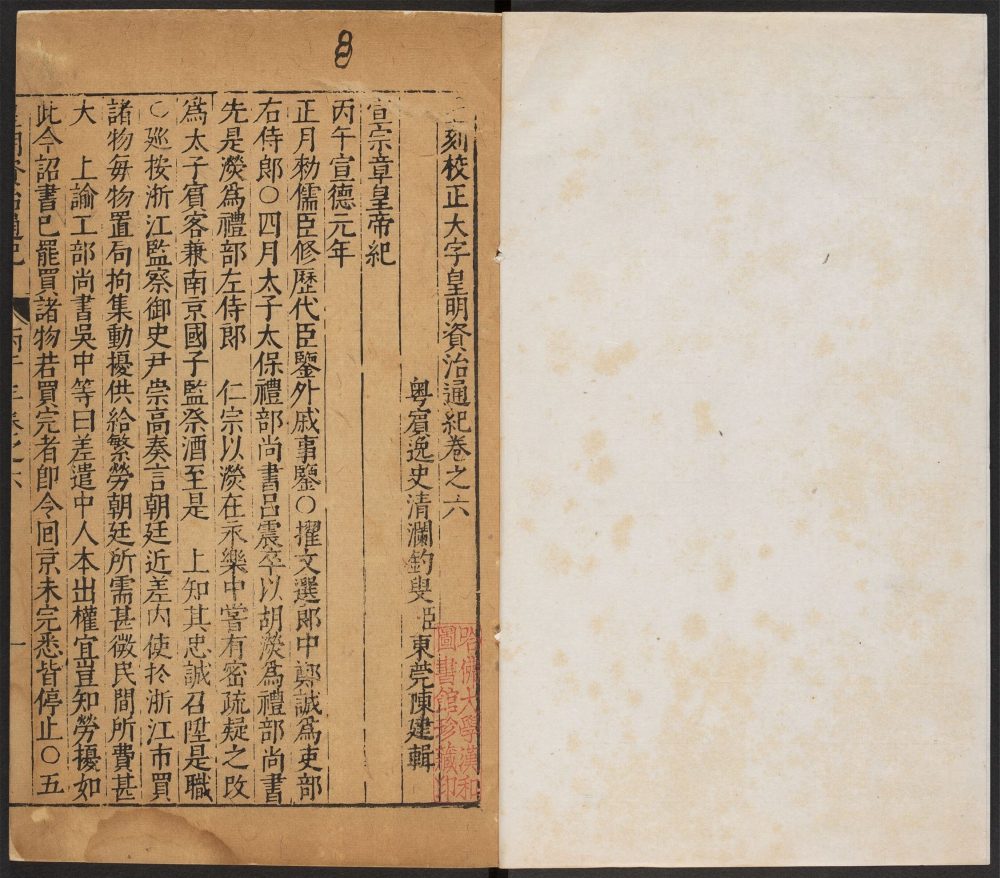 8
刻校正大字皇明資治通紀卷之六
粤濵逸史清瀾釣叟臣東莞陳建輯
宣宗章皇帝紀
丙午宣德元年
正月勑儒臣修歷代臣鑒外戚事鑒○擢文選郎中鄭誠爲吏部
右侍郎○四月太子太保禮部尚書呂震卒以胡濙爲禮部尚書
先是濙爲禮部左侍郎　仁宗以濙在永樂中嘗有密疏疑之改
爲太子賓客兼南京國子監祭酒至是　上知其忠誠召陞是職
○廵按浙江監察御史尹崇高奏言朝廷近差内使於浙江市買
諸物每物置局拘集動擾供給繁勞朝廷所需甚微民間所費甚
大　上諭工部尚書吳中等曰差遣中人本出權宜豈知勞擾如
此今詔書已罷買諸物若買完者即令回京未完悉皆停止○五
明資治通紀
丙午年卷之六
一
哈佛大學漢和
圖書館珍藏印